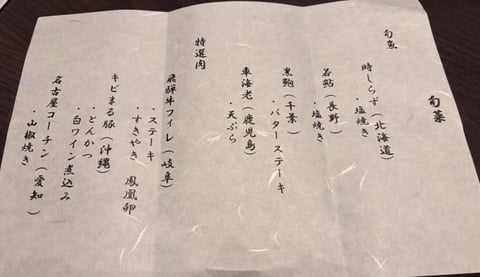 旬菜
旬魚
時しらず（北海道）
・塩焼き
若鮎（長野）
・塩焼き
黒鮑（千葉）
・バターステーキ
車海老（鹿児島）
・天ぷら
特選肉
飛騨牛フィレ（岐阜）
・ステーキ
・すきやき 鳳凰卵
キビまる豚（沖縄）
・とんかつ
・白ワイン煮込み
名古屋コーチン（愛知）
・山椒焼き